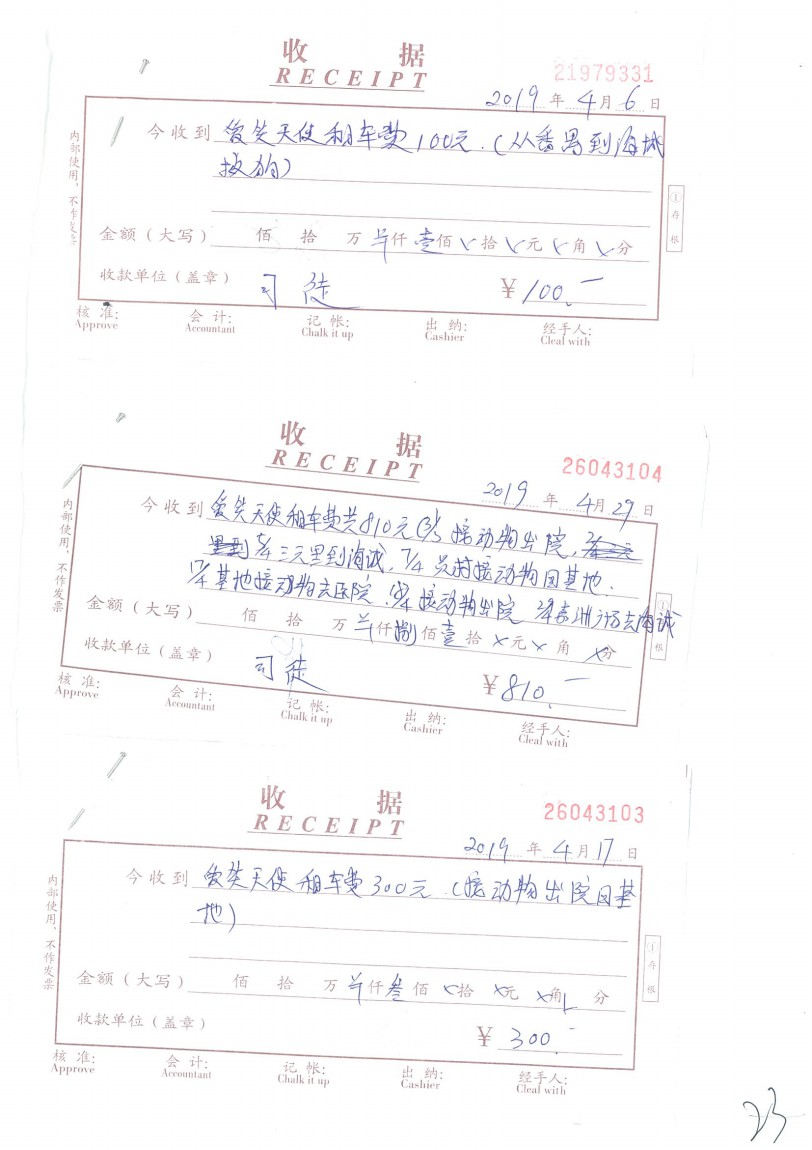 收 据
RECEIPT
21979331
2019 年 4 月 6 日
今收到 爱笑天使租车费100元.(从番禺到海城
救狗)
金额(大写) 佰 拾 万 仟壹佰 拾 元 角 分
收款单位(盖章) 司徒 ¥100.
核 准: 会 计: 记 帐: 出 纳: 经手人:
Approve Accountant Chalk it up Cashier Cleal with
内部使用,不作发票
①存根
收 据
RECEIPT
26043104
2019 年 4月29日
今收到 爱笑天使租车费共810元 接动物出院,
三元里到海诚, 7/4 接动物回基地.
基地接动物去医院. 接动物出院 去海诚
金额(大写) 佰 拾 万 仟捌佰壹拾 元 角 分
收款单位(盖章) 司徒 ¥810.
核 准: 会 计: 记 帐: 出 纳: 经手人:
Approve Accountant Chalk it up Cashier Cleal with
内部使用,不作发票
根
收 据
RECEIPT
26043103
2019 年 4月17日
今收到 爱笑天使租车费300元.(接动物出院回基
地)
金额(大写) 佰 拾 万 仟叁佰 拾 元 角 分
收款单位(盖章) ¥ 300.
核 准: 会 计: 记 帐: 出 纳: 经手人:
Approve Accountant Chalk it up Cashier Cleal with
内部使用、不作发票
①存根
23